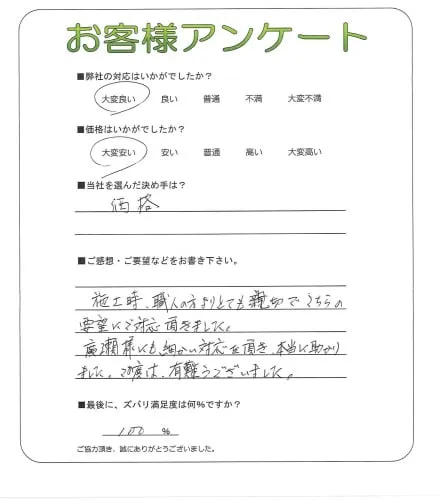 お客様アンケート
■弊社の対応はいかがでしたか？
大変良い 良い 普通 不満 大変不満
■価格はいかがでしたか？
大変安い 安い 普通 高い 大変高い
■当社を選んだ決め手は？
価格
■ご感想・ご要望などをお書き下さい。
施工時、職人の方々とても親切でこちらの
要望にご対応頂きました。
廣瀬様にも、細かい対応を頂き、本当に助かり
ました。この度は、有難うございました。
■最後に、ズバリ満足度は何％ですか？
100 ％
ご協力頂き、誠にありがとうございました。